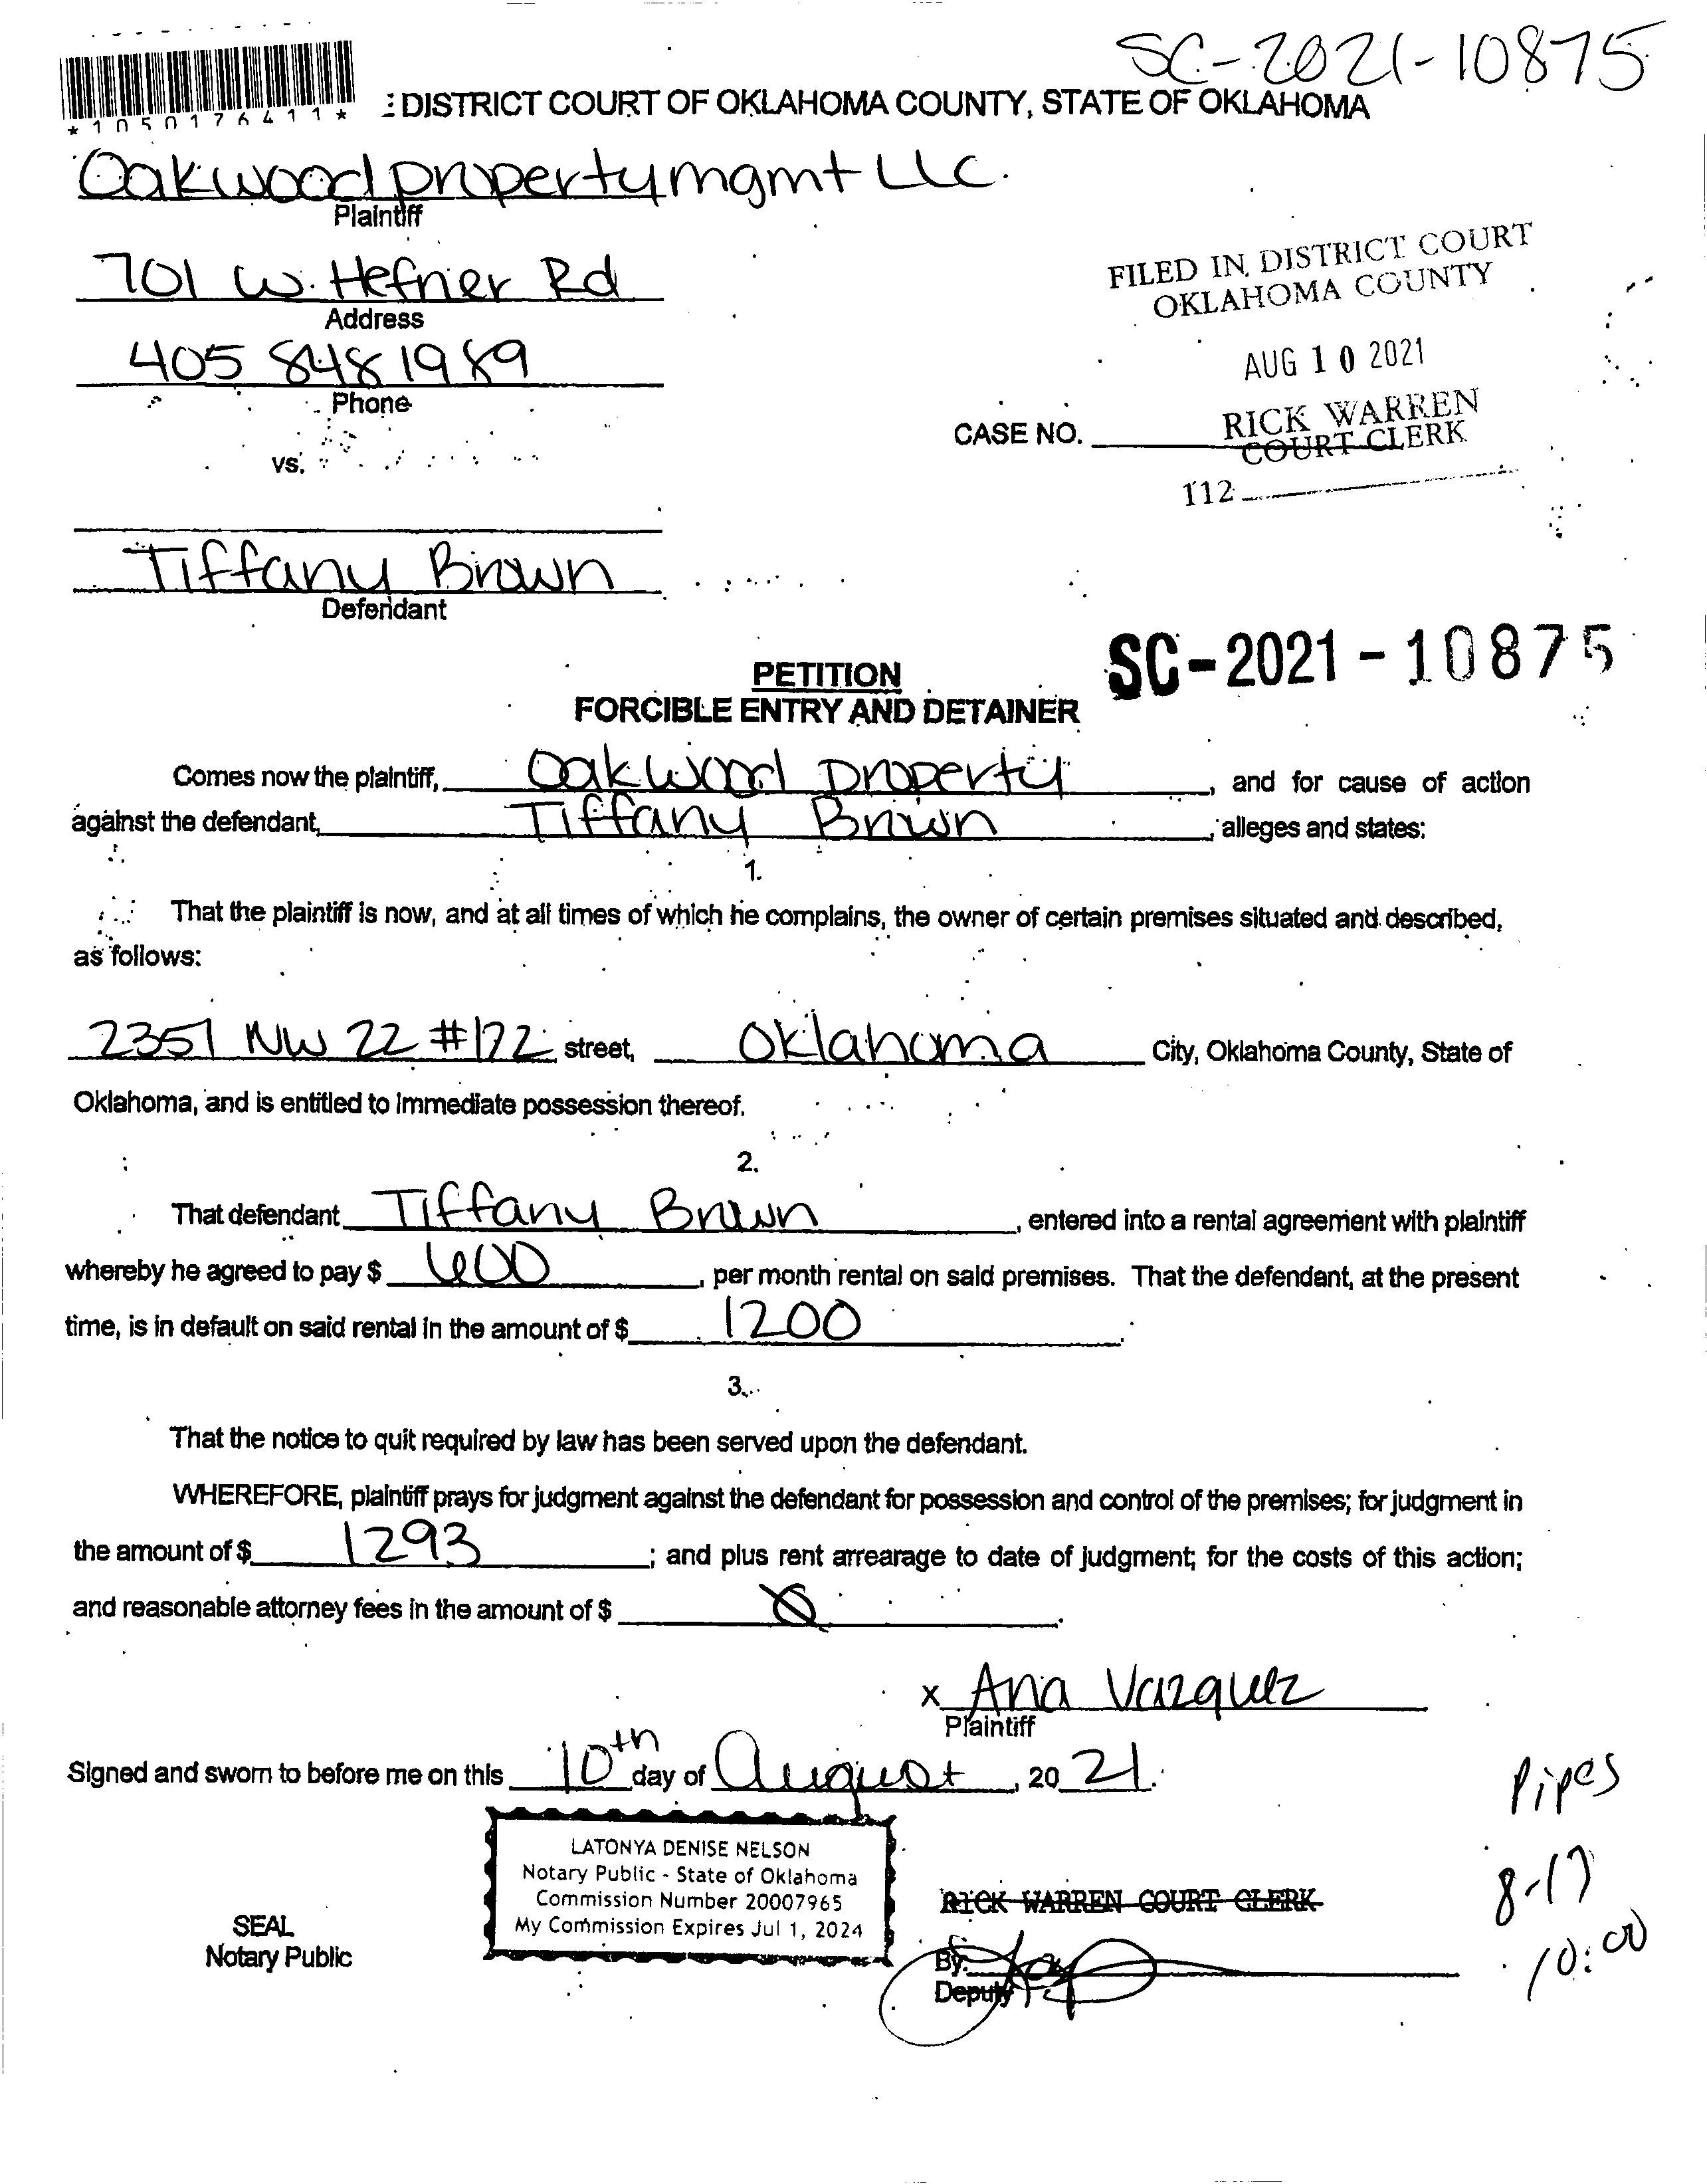 SC-2021-10875
*1050176411*
DISTRICT COURT OF OKLAHOMA COUNTY, STATE OF OKLAHOMA
Oakwood property mgmt LLC.
Plaintiff
701 W. Hefner Rd
Address
405 848 1989
Phone
vs.
FILED IN DISTRICT COURT
OKLAHOMA COUNTY
AUG 10 2021
RICK WARREN
COURT CLERK
CASE NO.
112
Tiffany Brown
Defendant
SC-2021-10875
PETITION
FORCIBLE ENTRY AND DETAINER
Comes now the plaintiff, Oakwood property, and for cause of action
against the defendant, Tiffany Brown, alleges and states:
1.
That the plaintiff is now, and at all times of which he complains, the owner of certain premises situated and described,
as follows:
2351 NW 22 #172 street, Oklahoma City, Oklahoma County, State of
Oklahoma, and is entitled to immediate possession thereof.
2.
That defendant Tiffany Brown, entered into a rental agreement with plaintiff
whereby he agreed to pay $ 600, per month rental on said premises. That the defendant, at the present
time, is in default on said rental in the amount of $ 1200.
3.
That the notice to quit required by law has been served upon the defendant.
WHEREFORE, plaintiff prays for judgment against the defendant for possession and control of the premises; for judgment in
the amount of $ 1293; and plus rent arrearage to date of judgment; for the costs of this action;
and reasonable attorney fees in the amount of $ 0.
x Ana Vazquez
Plaintiff
Signed and sworn to before me on this 10th day of August, 20 21.
LATONYA DENISE NELSON
Notary Public - State of Oklahoma
Commission Number 20007965
My Commission Expires Jul 1, 2024
SEAL
Notary Public
RICK WARREN COURT CLERK
By:
Deputy
Pipes
8-17
10:00